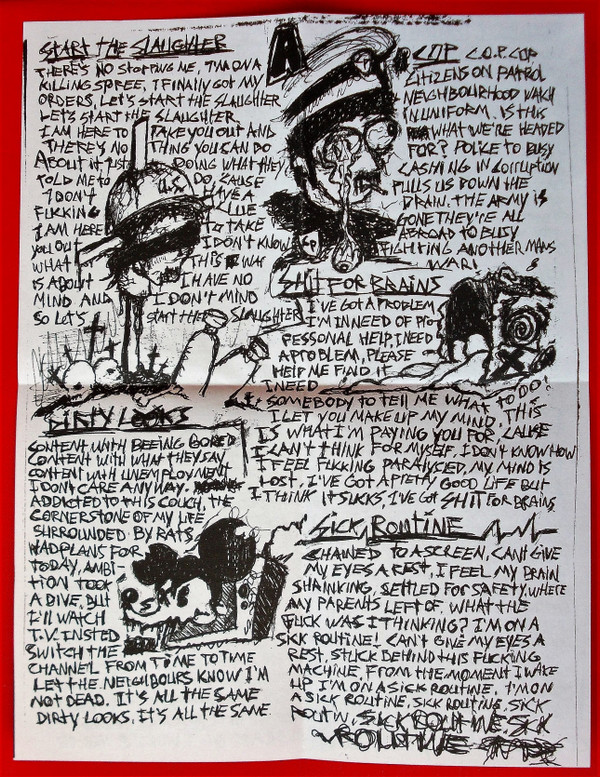 START THE SLAUGHTER
THERE'S NO STOPPING ME, I'M ON A
KILLING SPREE, I FINALLY GOT MY
ORDERS, LET'S START THE SLAUGHTER
LET'S START THE SLAUGHTER
I AM HERE TO TAKE YOU OUT AND
THERE'S NO THING YOU CAN DO
ABOUT IT JUST DOING WHAT THEY
TOLD ME TO DO, CAUSE
I DON'T HAVE A
FUCKING CLUE
I AM HERE TO TAKE
YOU OUT I DON'T KNOW
WHAT THIS WAR
IS ABOUT I HAVE NO
MIND AND I DON'T MIND
SO LET'S START THE SLAUGHTER
U.S.
COP C.O.P. COP
CITIZENS ON PATROL
NEIGHBOURHOOD WATCH
IN UNIFORM. IS THIS
WHAT WE'RE HEADED
FOR? POLICE TO BUSY
CASHING IN CORRUPTION
PULLS US DOWN THE
DRAIN. THE ARMY IS
GONE THEY'RE ALL
ABROAD TO BUSY
FIGHTING ANOTHER MANS
WAR!
SHIT FOR BRAINS
I'VE GOT A PROBLEM
I'M IN NEED OF PRO
FESSONAL HELP, I NEED
A PROBLEM, PLEASE
HELP ME FIND IT
I NEED
SOMEBODY TO TELL ME WHAT TO DO!
I LET YOU MAKE UP MY MIND, THIS
IS WHAT I'M PAYING YOU FOR, CAUSE
I CAN'T THINK FOR MYSELF, I DON'T KNOW HOW
I FEEL FUCKING PARALYSED, MY MIND IS
LOST, I'VE GOT A GOOD LIFE BUT
I THINK IT SUCKS, I'VE GOT SHIT FOR BRAINS
DIRTY LOOKS
CONTENT WITH BEEING BORED
CONTENT WITH WHAT THEY SAY
CONTENT WITH UNEMPLOYMENT
I DON'T CARE ANYWAY.
ADDICTED TO THIS COUCH, THE
CORNERSTONE OF MY LIFE
SURROUNDED BY RATS
MAD PLANS FOR
TODAY, AMBI-
TION TOOK
A DIVE, BUT
I'LL WATCH
T.V. INSTED
SWITCH THE
CHANNEL FROM TIME TO TIME
LET THE NEIGHBOURS KNOW I'M
NOT DEAD. IT'S ALL THE SAME
DIRTY LOOKS, IT'S ALL THE SAME
SICK ROUTINE
CHAINED TO A SCREEN, CAN'T GIVE
MY EYES A REST, I FEEL MY BRAIN
SHRINKING, SETTLED FOR SAFETY, WHERE
MY PARENTS LEFT OF. WHAT THE
FUCK WAS I THINKING? I'M ON A
SICK ROUTINE! CAN'T GIVE MY EYES A
REST, STUCK BEHIND THIS FUCKING
MACHINE, FROM THE MOMENT I WAKE
UP I'M ON A SICK ROUTINE. I'M ON
A SICK ROUTINE, SICK ROUTINE, SICK
ROUTIN, SICK ROUTINE SICK
ROUTINE